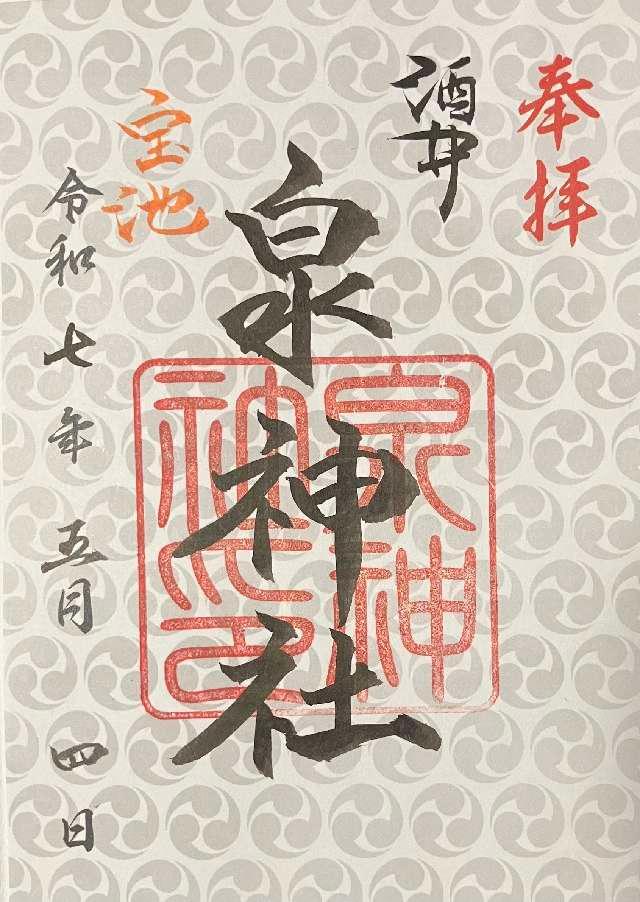 奉拝
酒井
泉神社
宝池
令和七年五月四日